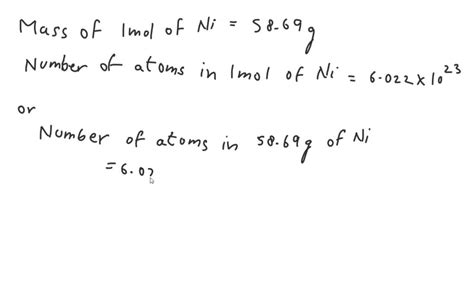 Mass of 1mol of Ni = 58.69g
Number of atoms in 1mol of Ni = 6.022 × 10²³
or
Number of atoms in 58.69g of Ni
= 6.02